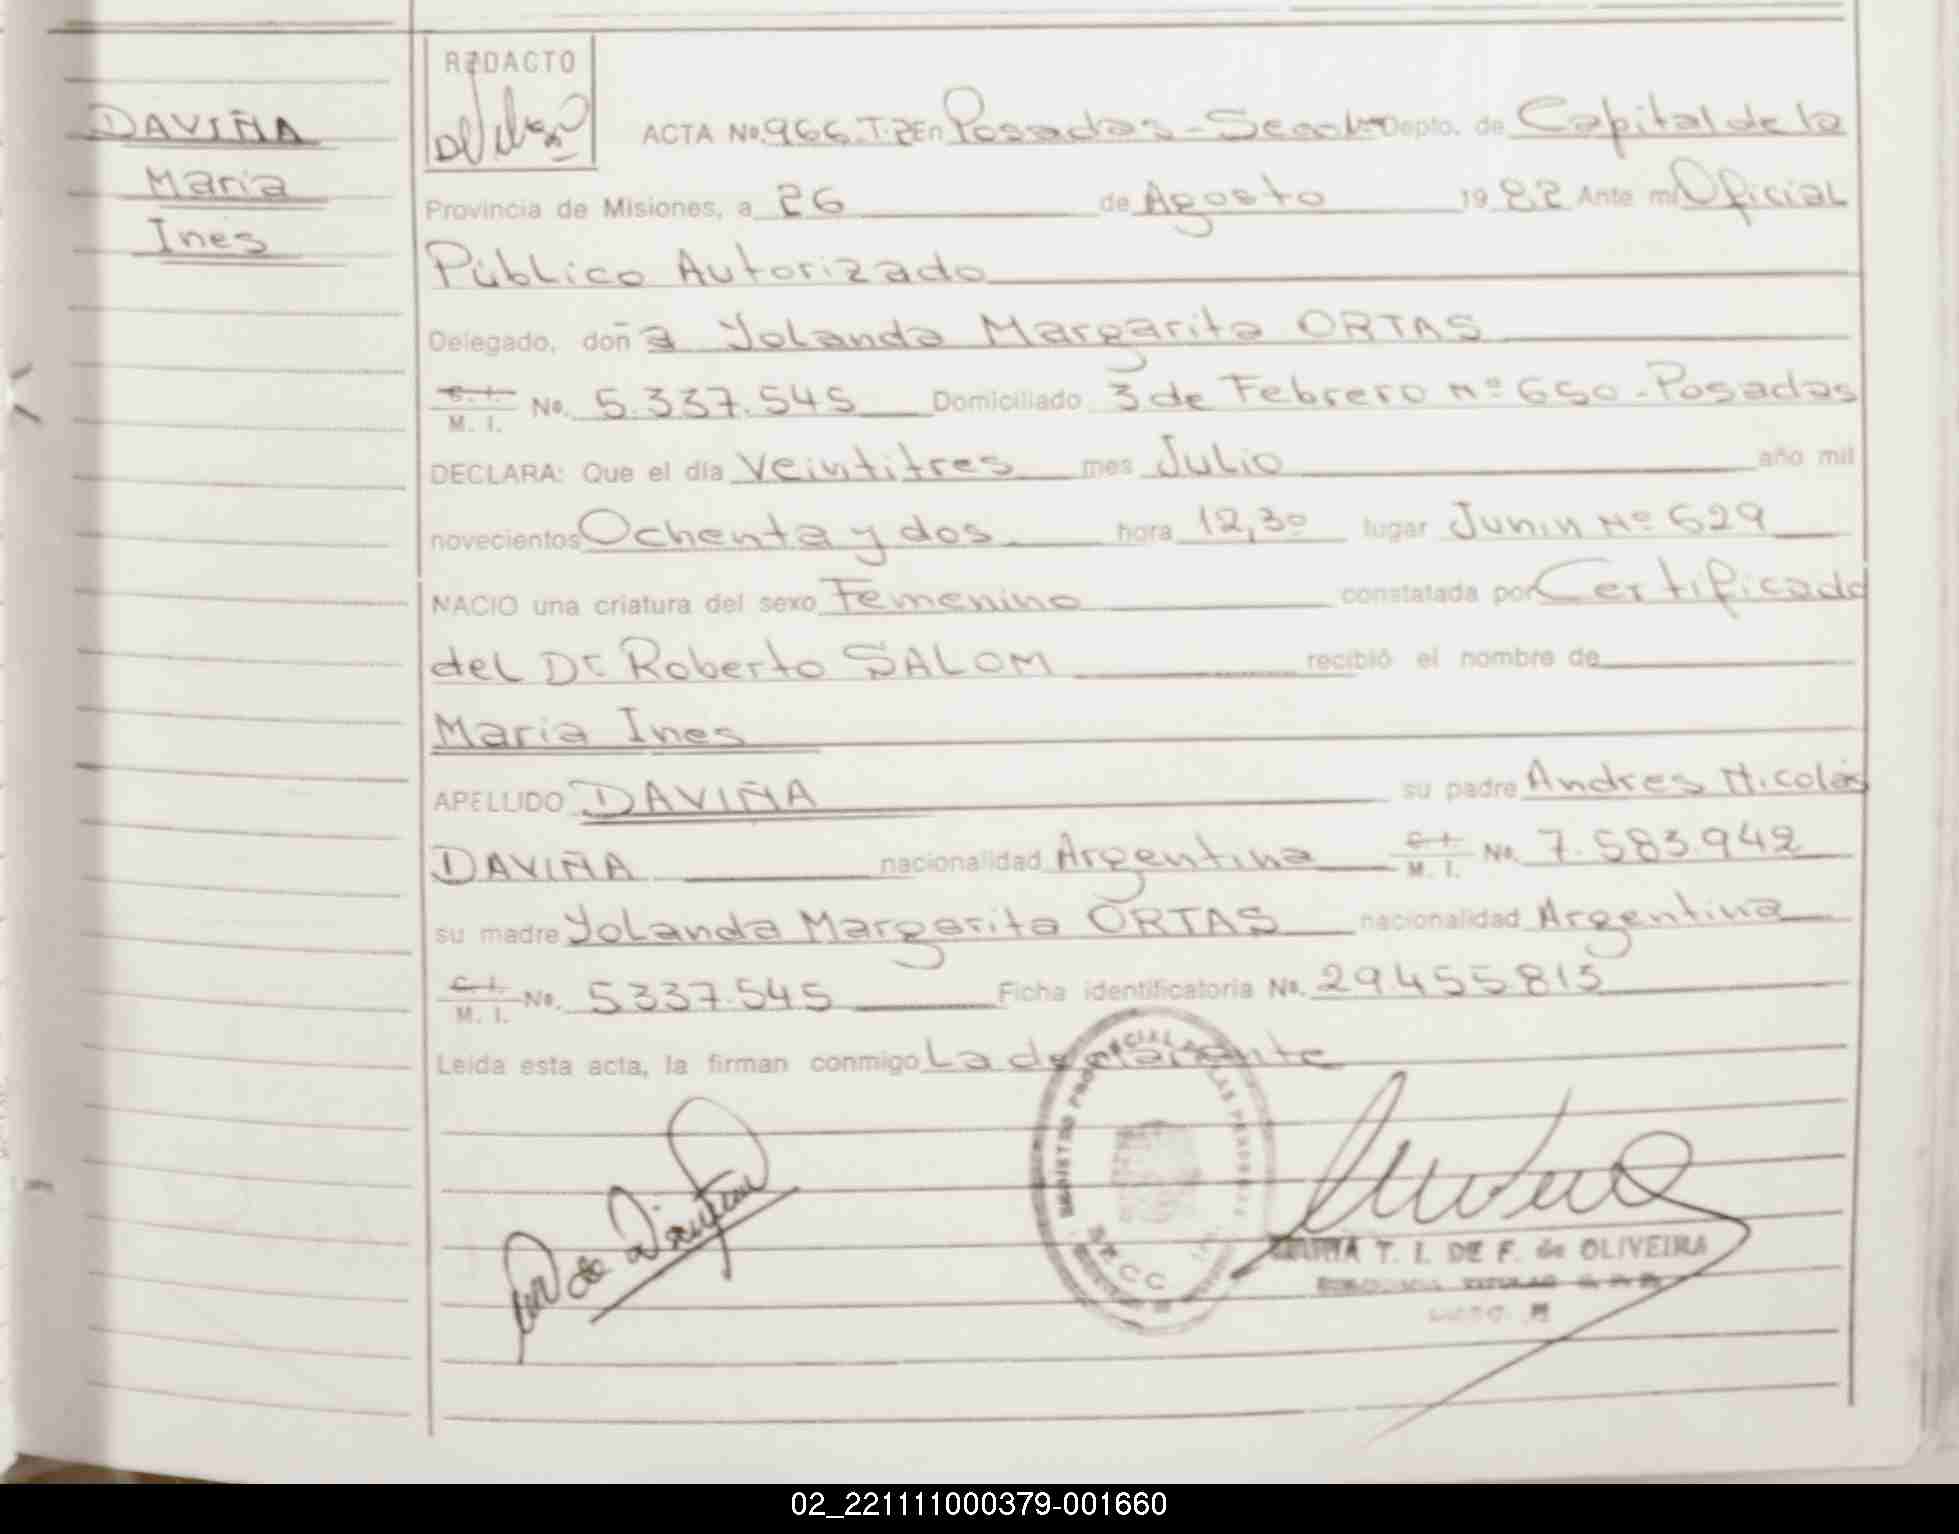 DAVIÑA
Maria
Ines
REDACTO
ACTA No. 966. T. 2 En Posadas - Secc. Depto. de Capital de la
Provincia de Misiones, a 26 de Agosto 1982 Ante mi Oficial
Público Autorizado
Delegado, doña Yolanda Margarita ORTAS
C. I. M. I. No. 5.337.545 Domiciliado 3 de Febrero nº 650 - Posadas
DECLARA: Que el día Veintitres mes Julio año mil
novecientos Ochenta y dos hora 12,30 lugar Junin Nº 629
NACIO una criatura del sexo Femenino constatada por Certificado
del Dr Roberto SALOM recibió el nombre de
Maria Ines
APELLIDO DAVIÑA su padre Andres Nicolás
DAVIÑA nacionalidad Argentina C. I. M. I. No. 7.583.942
su madre Yolanda Margarita ORTAS nacionalidad Argentina
C. I. M. I. No. 5337.545 Ficha identificatoria No. 29455815
Leída esta acta, la firman conmigo La declarante
REGISTRO PROVINCIAL DE LAS PERSONAS
SECC
T. I. DE F. de OLIVEIRA
02_221111000379-001660